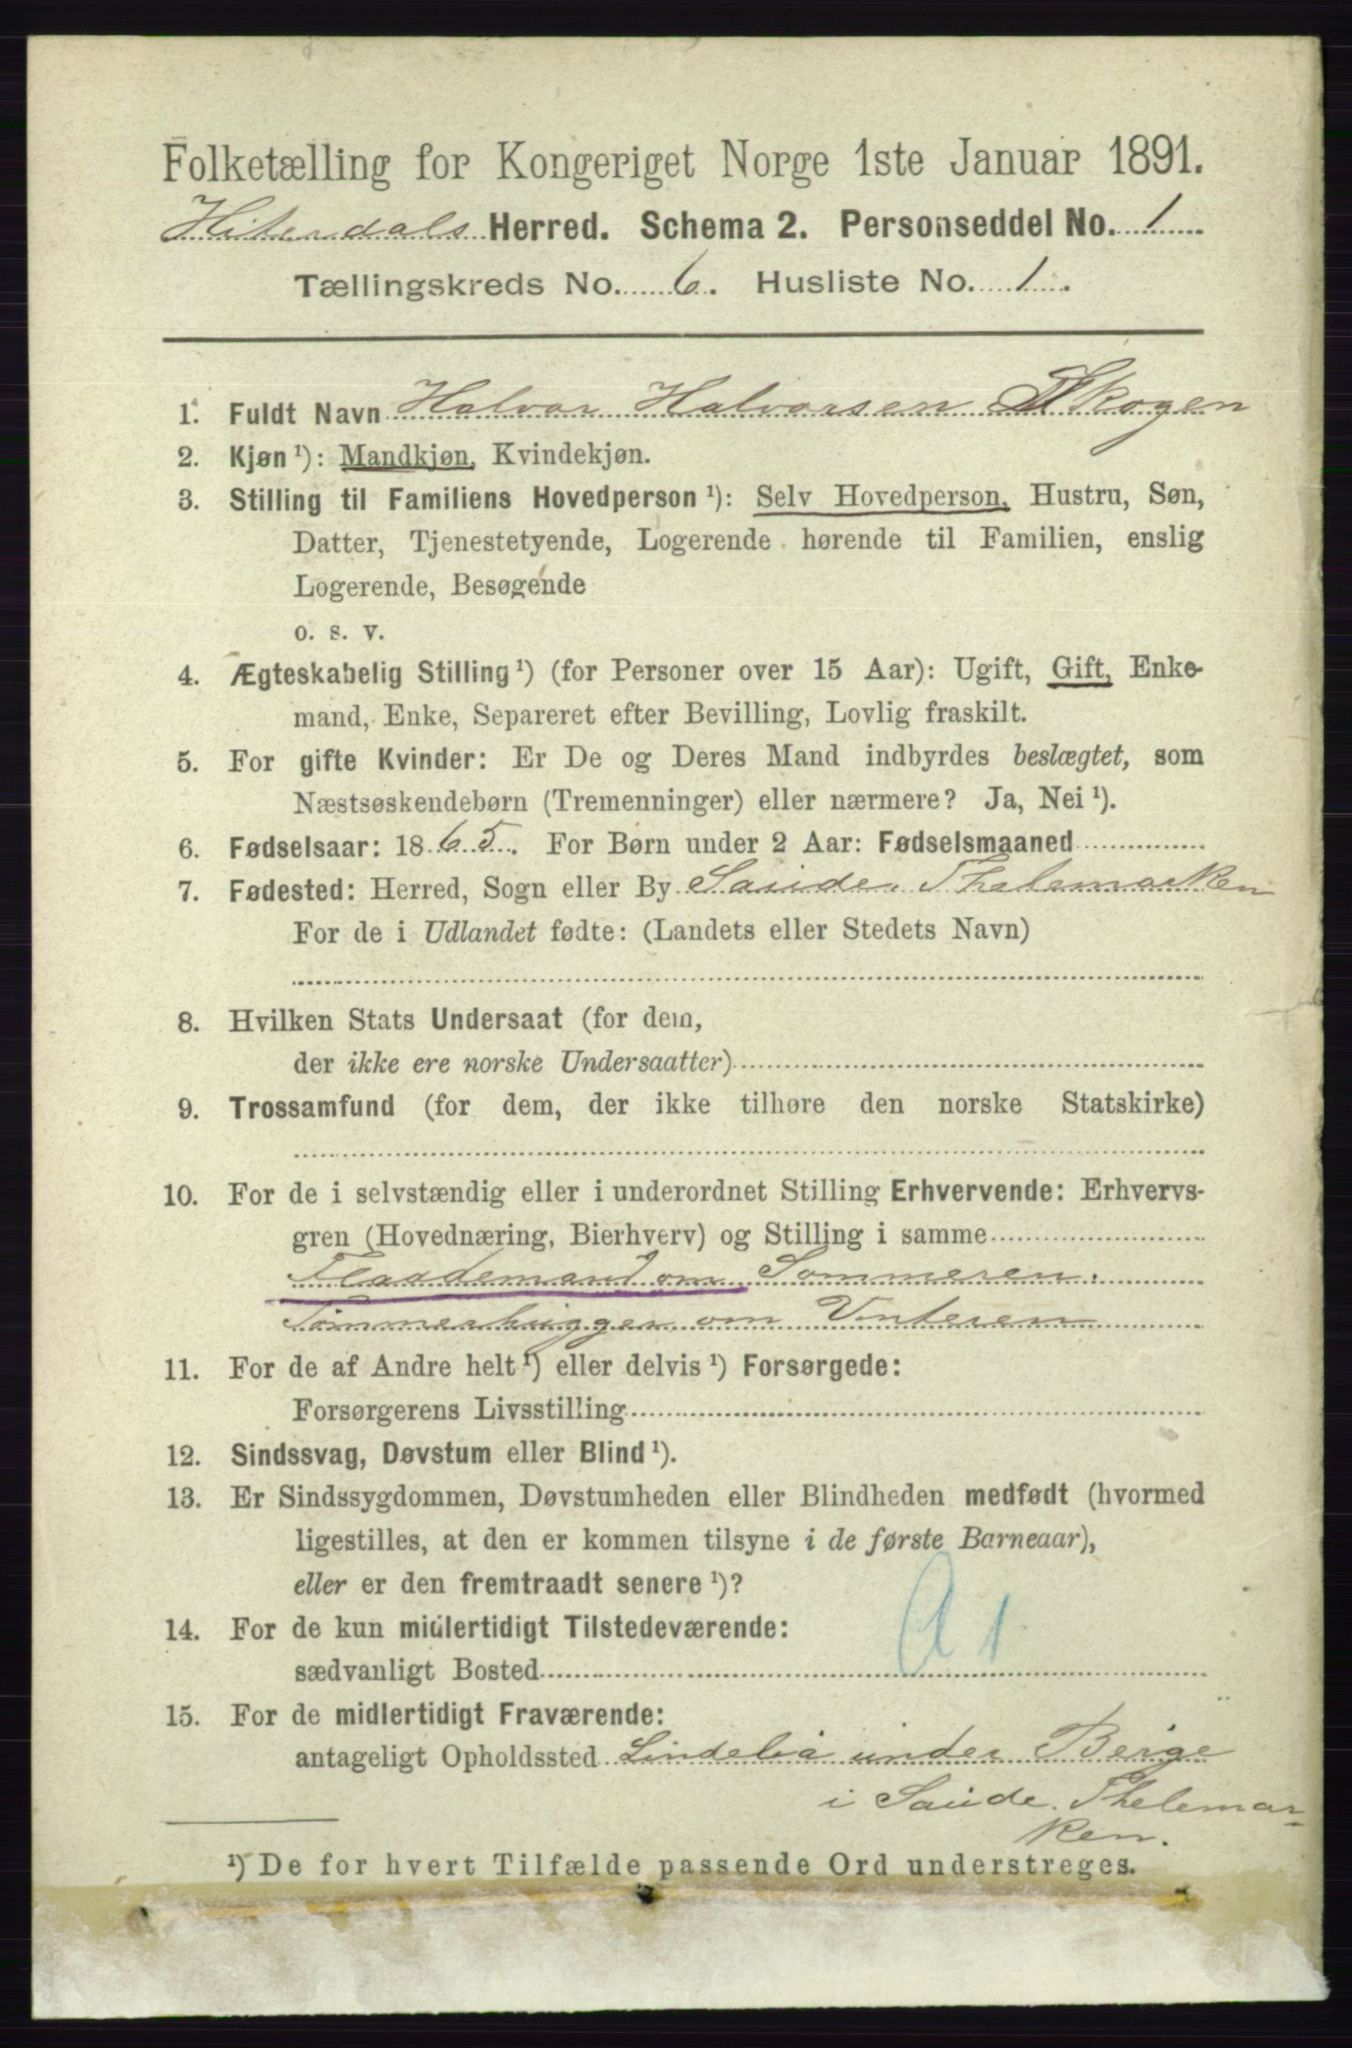 Folketælling for Kongeriget Norge 1ste Januar 1891.
Hiterdals Herred. Schema 2. Personseddel No. 1
Tællingskreds No. 6. Husliste No. 1.
1. Fuldt Navn Halvor Halvorsen Skogen
2. Kjøn ¹): Mandkjøn, Kvindekjøn.
3. Stilling til Familiens Hovedperson ¹): Selv Hovedperson, Hustru, Søn,
Datter, Tjenestetyende, Logerende hørende til Familien, enslig
Logerende, Besøgende
o. s. v.
4. Ægteskabelig Stilling ¹) (for Personer over 15 Aar): Ugift, Gift, Enke-
mand, Enke, Separeret efter Bevilling, Lovlig fraskilt.
5. For gifte Kvinder: Er De og Deres Mand indbyrdes beslægtet, som
Næstsøskendebørn (Tremenninger) eller nærmere? Ja, Nei ¹).
6. Fødselsaar: 1865. For Børn under 2 Aar: Fødselsmaaned
7. Fødested: Herred, Sogn eller By Saude. Thelemarken
For de i Udlandet fødte: (Landets eller Stedets Navn)
8. Hvilken Stats Undersaat (for dem,
der ikke ere norske Undersaatter)
9. Trossamfund (for dem, der ikke tilhøre den norske Statskirke)
10. For de i selvstændig eller i underordnet Stilling Erhvervende: Erhvervs-
gren (Hovednæring, Bierhverv) og Stilling i samme
Flaademand om Sommeren.
Tømmerhugger om Vinteren
11. For de af Andre helt ¹) eller delvis ¹) Forsørgede:
Forsørgerens Livsstilling
12. Sindssvag, Døvstum eller Blind ¹).
13. Er Sindssygdommen, Døvstumheden eller Blindheden medfødt (hvormed
ligestilles, at den er kommen tilsyne i de første Barneaar),
eller er den fremtraadt senere ¹)?
14. For de kun midlertidigt Tilstedeværende:
sædvanligt Bosted
A 1
15. For de midlertidigt Fraværende:
antageligt Opholdssted Lindelia under Berge
i Saude. Thelemar-
ken.
¹) De for hvert Tilfælde passende Ord understreges.